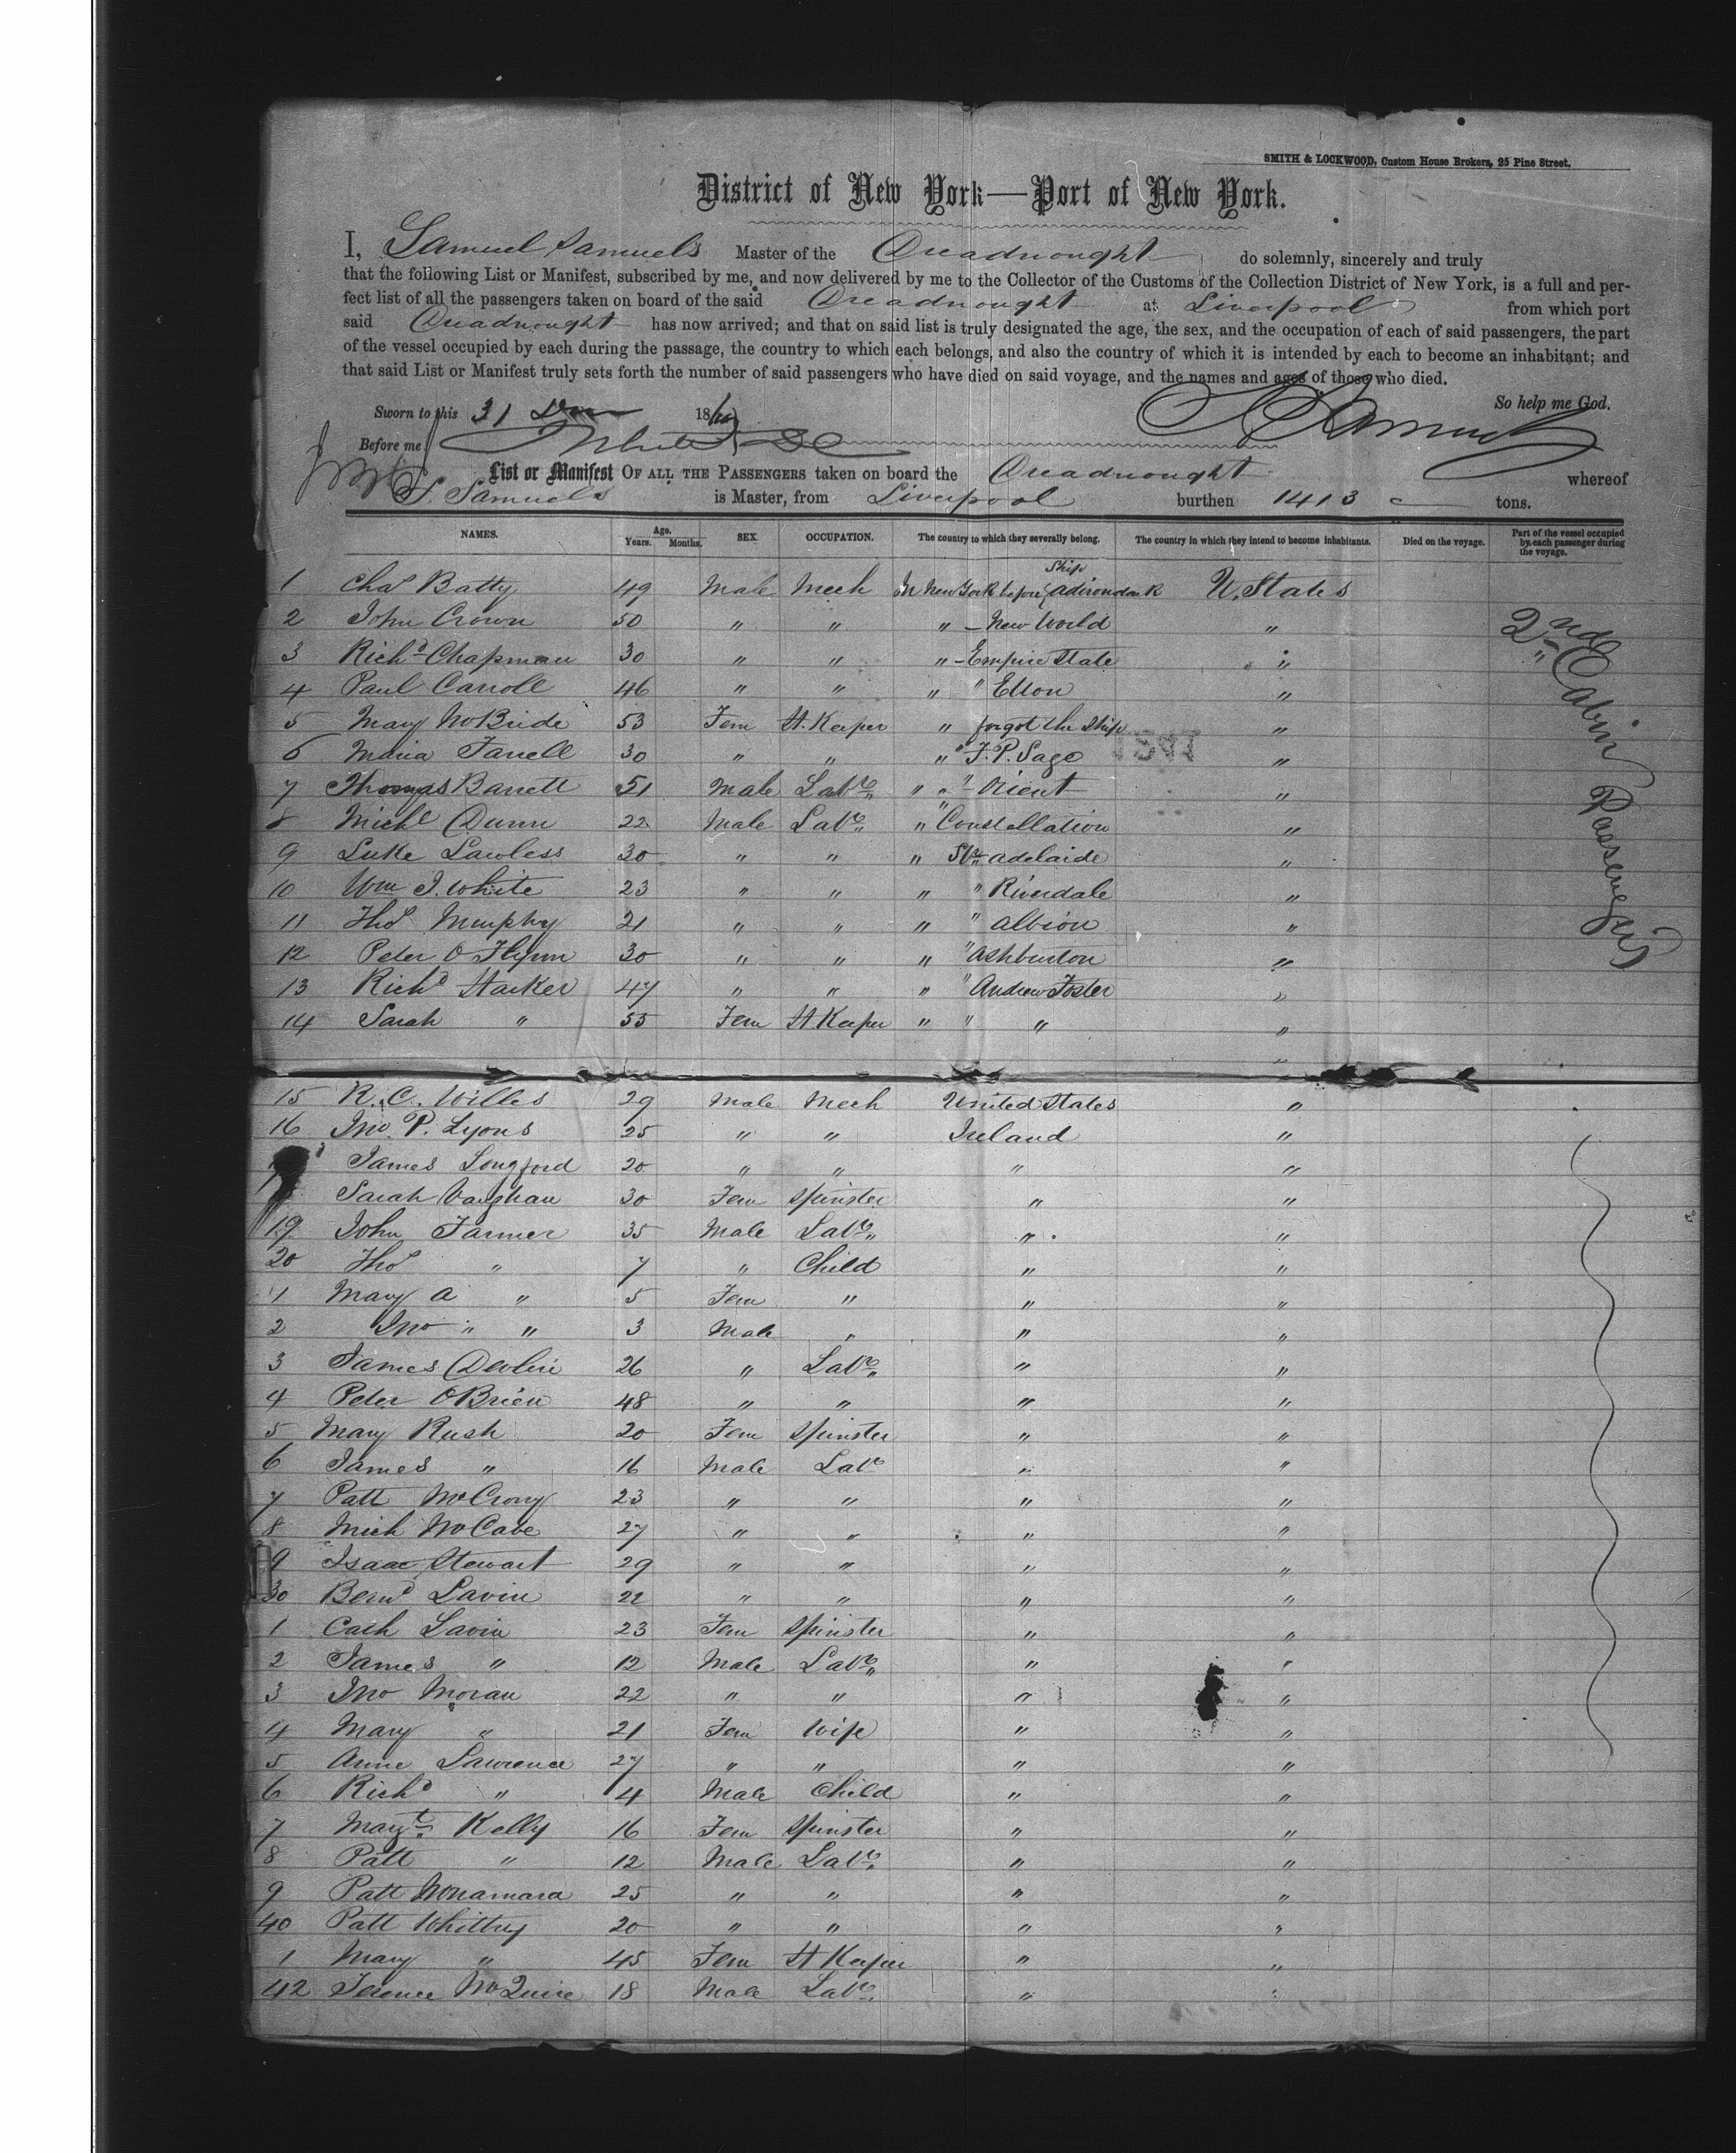 SMITH & LOCKWOOD, Custom House Brokers, 25 Pine Street.
District of New York—Port of New York.
I, Samuel Samuels Master of the Dreadnought do solemnly, sincerely and truly
that the following List or Manifest, subscribed by me, and now delivered by me to the Collector of the Customs of the Collection District of New York, is a full and per-
fect list of all the passengers taken on board of the said Dreadnought at Liverpool from which port
said Dreadnought has now arrived; and that on said list is truly designated the age, the sex, and the occupation of each of said passengers, the part
of the vessel occupied by each during the passage, the country to which each belongs, and also the country of which it is intended by each to become an inhabitant; and
that said List or Manifest truly sets forth the number of said passengers who have died on said voyage, and the names and ages of those who died.
So help me God.
Sworn to this 31 18
S Samuels
Before me
List or Manifest OF ALL THE PASSENGERS taken on board the Dreadnought whereof
S. Samuels is Master, from Liverpool burthen 1413 tons.
NAMES. Age. Years. Months. SEX. OCCUPATION. The country to which they severally belong. The country in which they intend to become inhabitants. Died on the voyage. Part of the vessel occupied by each passenger during the voyage.
1 Chas Batty 49 Male Mech In New York before Ship Adirondack U. States
2 John Crown 50 " " " - New World "
3 Richd Chapman 30 " " " - Empire State "
4 Paul Carroll 46 " " " " Elton "
5 Mary McBride 53 Fem H. Keeper " forgot the Ship "
6 Maria Farrell 30 " " " " F. P. Sage "
7 Thomas Barrett 51 Male Labr " " " Orient "
8 Michl Dunn 22 Male Labr " " Constellation "
9 Luke Lawless 30 " " " Str Adelaide "
10 Wm J. White 23 " " " " Riverdale "
11 Thos Murphy 21 " " " " Albion "
12 Peter O Flynn 30 " " " " Ashburton "
13 Richd Harker 47 " " " " Andrew Foster "
14 Sarah " 55 Fem H. Keeper " " " "
2nd Cabin Passengers
15 R. C. Willes 29 Male Mech United States "
16 Jno. P. Lyons 25 " " Ireland "
James Longford 20 " " " "
Sarah Vaughan 30 Fem Spinster " "
19 John Farmer 35 Male Labr " "
20 Thos " 7 " Child " "
1 Mary A " 5 Fem " " "
2 Jno " " 3 Male " " "
3 James Devlin 26 " Labr " "
4 Peter OBrien 48 " " " "
5 Mary Rush 20 Fem Spinster " "
6 James " 16 Male Labr " "
7 Patt McCrory 23 " " " "
8 Mich McCabe 27 " " " "
9 Isaac Stewart 29 " " " "
30 Bernd Lavin 22 " " " "
1 Cath Lavin 23 Fem Spinster " "
2 James " 12 Male Labr " "
3 Jno Moran 22 " " " "
4 Mary " 21 Fem Wife " "
5 Anne Lawrence 27 " " " "
6 Richd " 4 Male Child " "
7 Margt Kelly 16 Fem Spinster " "
8 Patt " 12 Male Labr " "
9 Patt McNamara 25 " " " "
40 Patt Whittey 20 " " " "
1 Mary " 45 Fem H Keeper " "
42 Terence McQuire 18 Male Labr " "